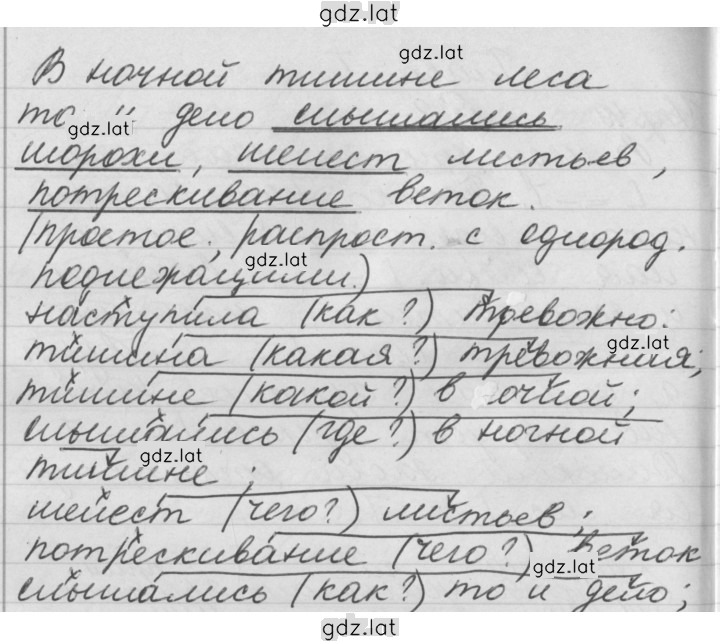 gdz.lat
gdz.lat
В ночной тишине леса
то и дело слышались
gdz.lat
шорохи, шелест листьев,
потрескивание веток.
(простое, распрост. с однород.
gdz.lat
подлежащими.)
наступила (как?) тревожно:
gdz.lat
тишина (какая?) тревожная;
тишине (какой?) в ночной;
слышались (где?) в ночной
gdz.lat
тишине;
шелест (чего?) листьев;
потрескивание (чего?) веток
gdz.lat
слышались (как?) то и дело;
gdz.lat